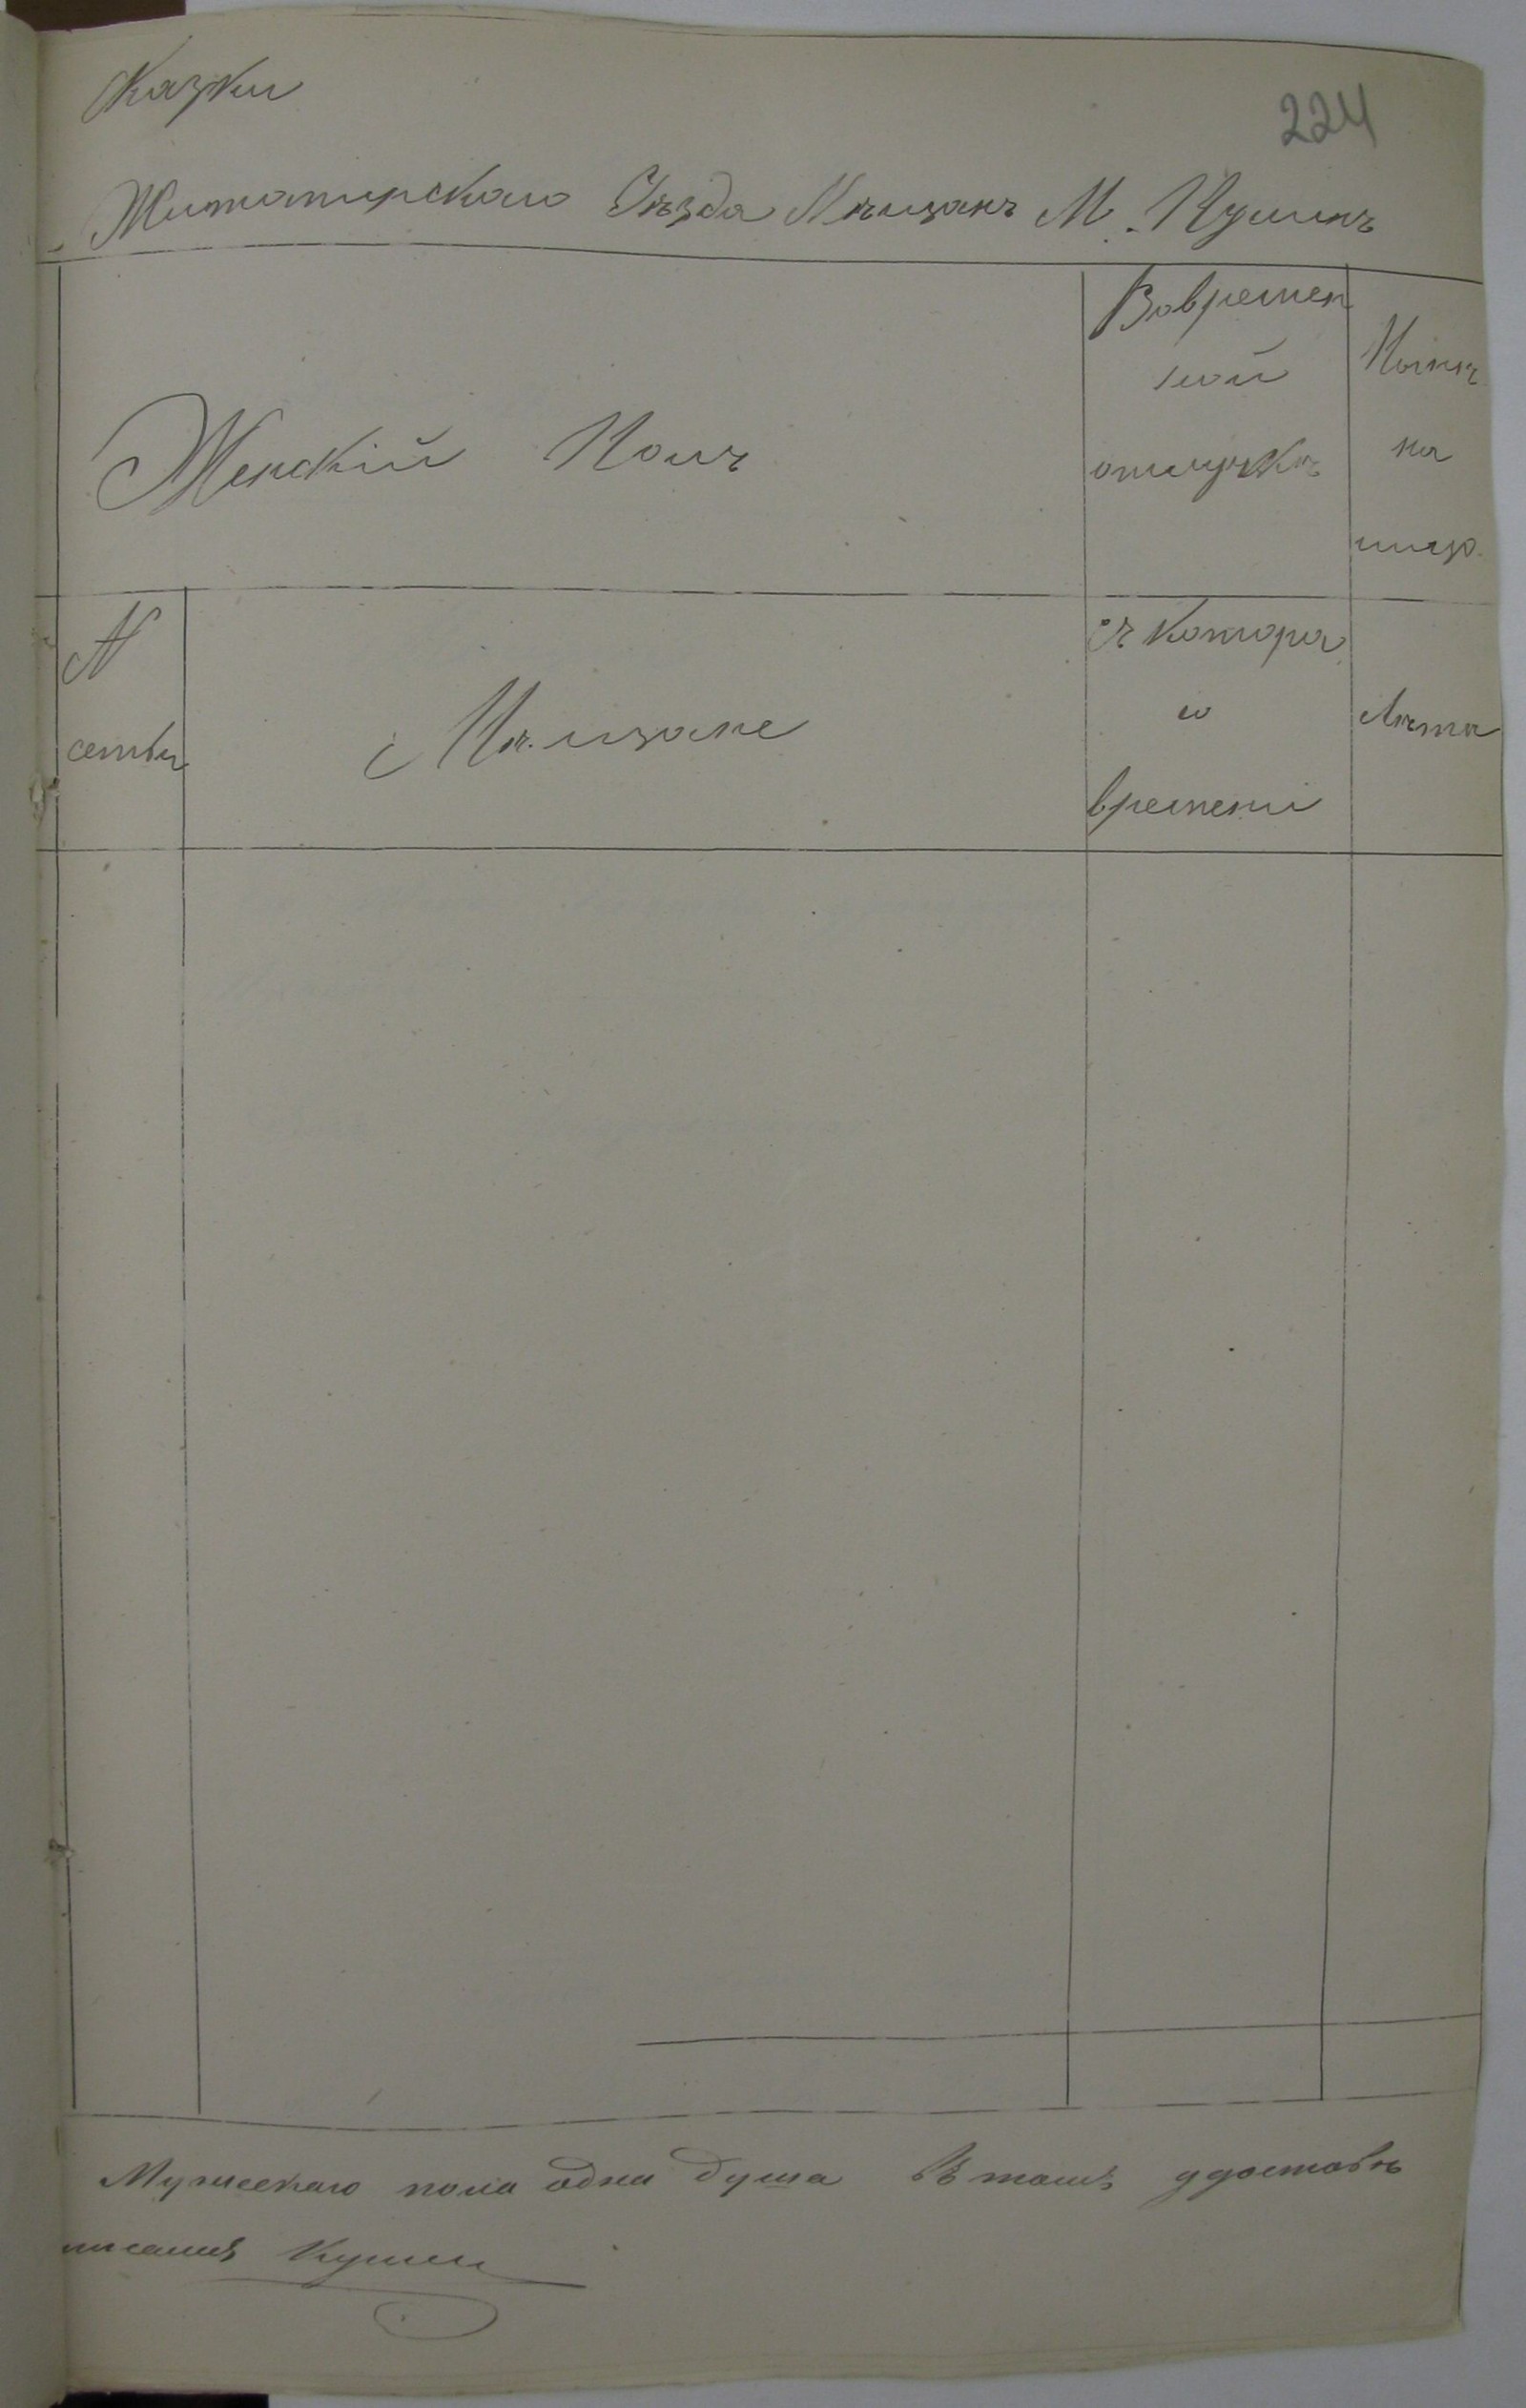 сказки
224
Житомирскаго Уѣзда Мѣщанъ М. Кушнъ
Женскій Полъ
Вовремен
ной
отлучкѣ
Нынѣ
на
лицо.
N
семьи
Мѣщане
съ котора
го
времени
Лѣта
Мужескаго пола одна душа Въ томъ удостовѣ